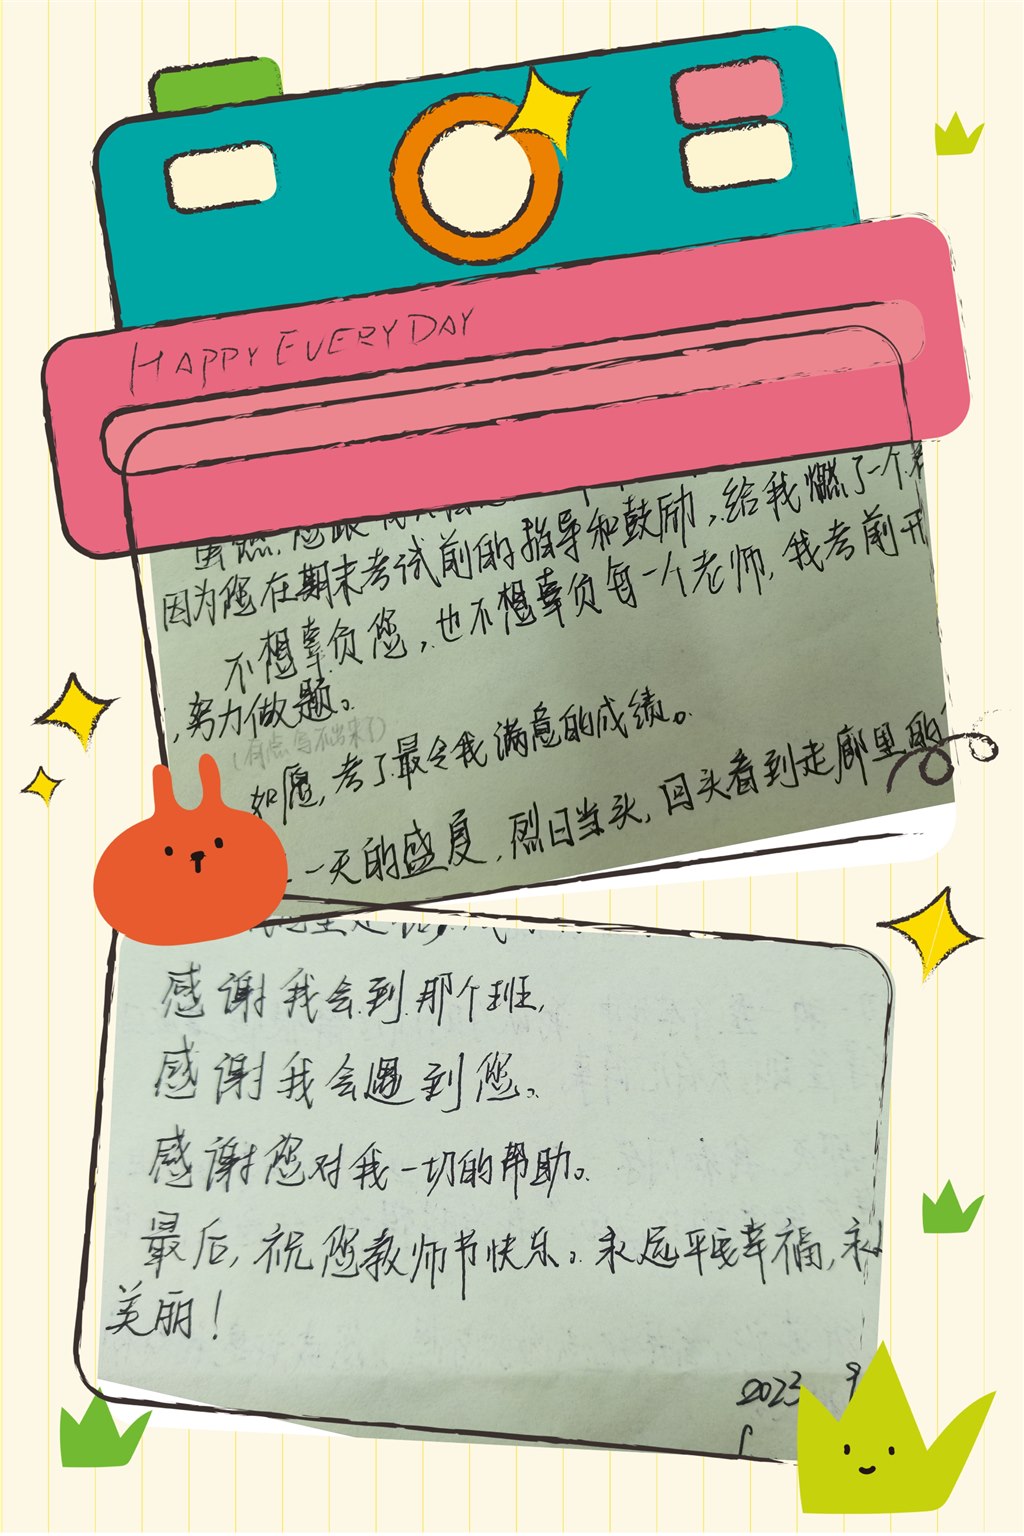 HAPPY EVERY DAY
因为您在期末考试前的指导和鼓励，给我燃了一个
不想辜负您，也不想辜负每一个老师，我考前开
，努力做题。
（有点写不出来了）
如愿，考了最令我满意的成绩。
一天的盛夏，烈日当头，回头看到走廊里的
感谢我会到那个班，
感谢我会遇到您。
感谢您对我一切的帮助。
最后，祝您教师节快乐。永远平安幸福，永
美丽！
2023 9